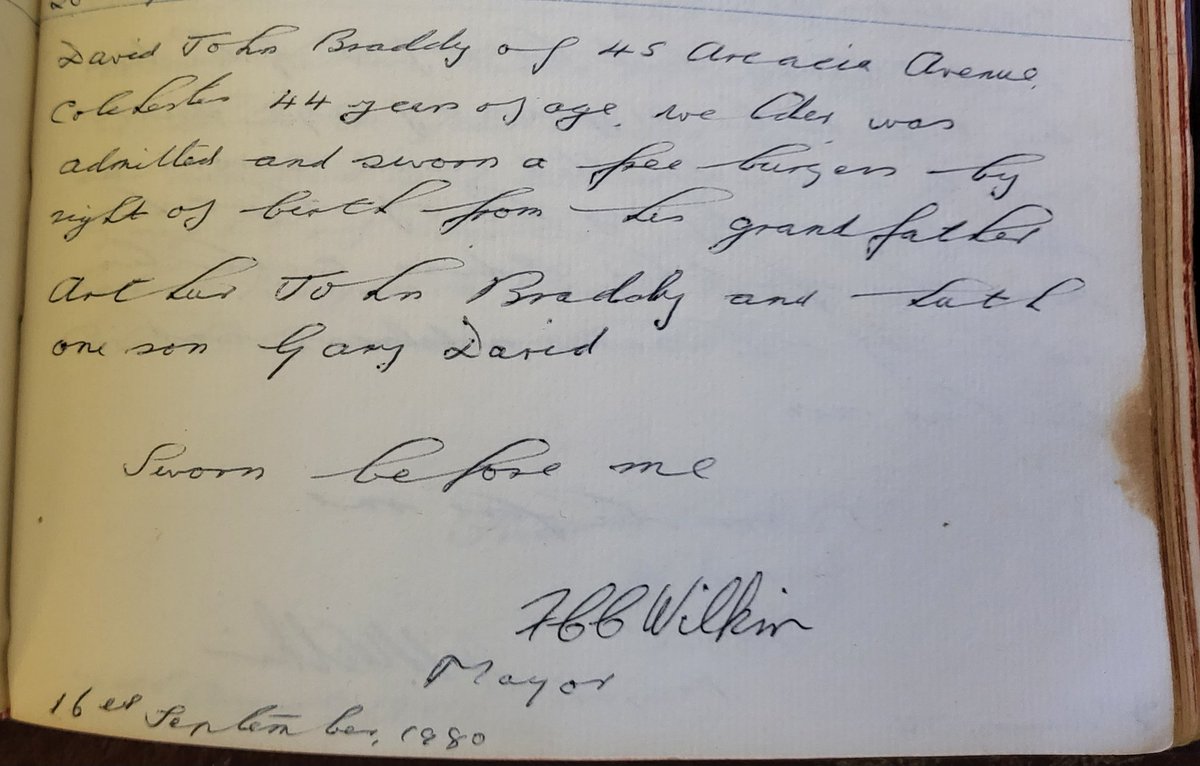 David John Braddy of 45 Arcacia Avenue,
Colchester 44 years of age, was
admitted and sworn a free burgess by
right of birth from his grandfather
Arthur John Braddy and hath
one son Gary David
Sworn before me
Wilkin
Mayor
16 September, 1980